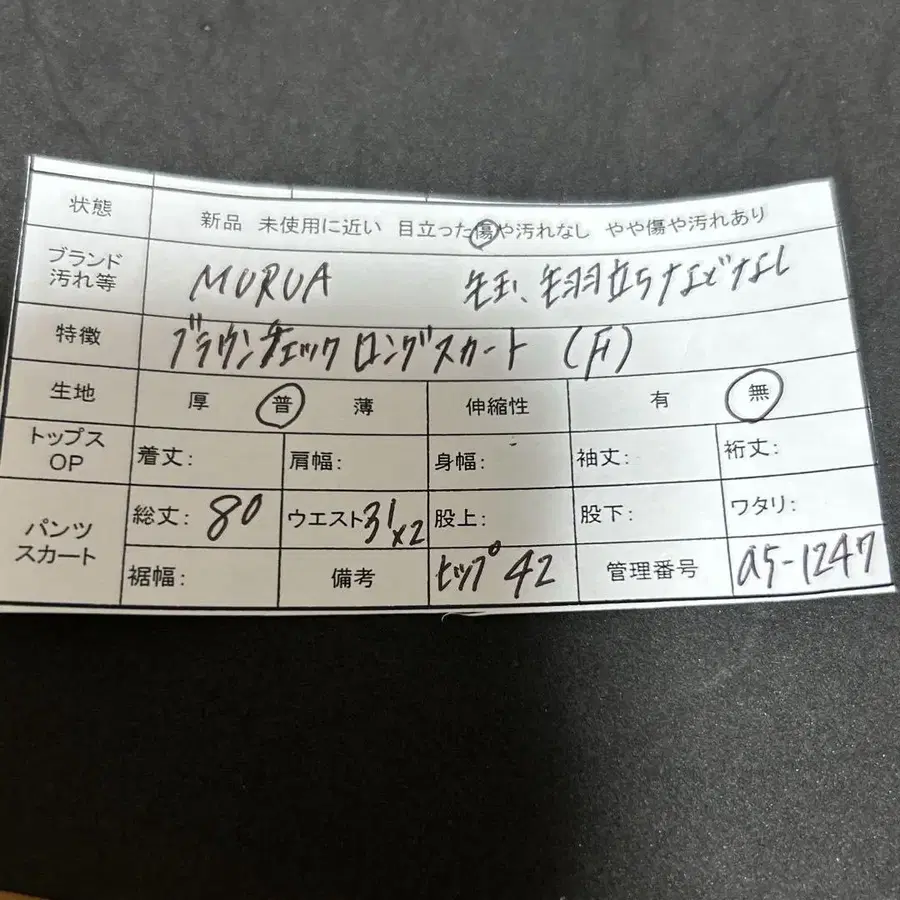 状態 新品 未使用に近い 目立った傷や汚れなし やや傷や汚れあり
ブランド
汚れ等 MURUA 毛玉、毛羽立ちなどなし
特徴 ブラウンチェック ロングスカート (F)
生地 厚 普 薄 伸縮性 有 無
トップス
OP 着丈: 肩幅: 身幅: 袖丈: 裄丈:
パンツ
スカート 総丈: 80 ウエスト 31x2 股上: 股下: ワタリ:
裾幅: 備考 ヒップ 42 管理番号 a5-1247